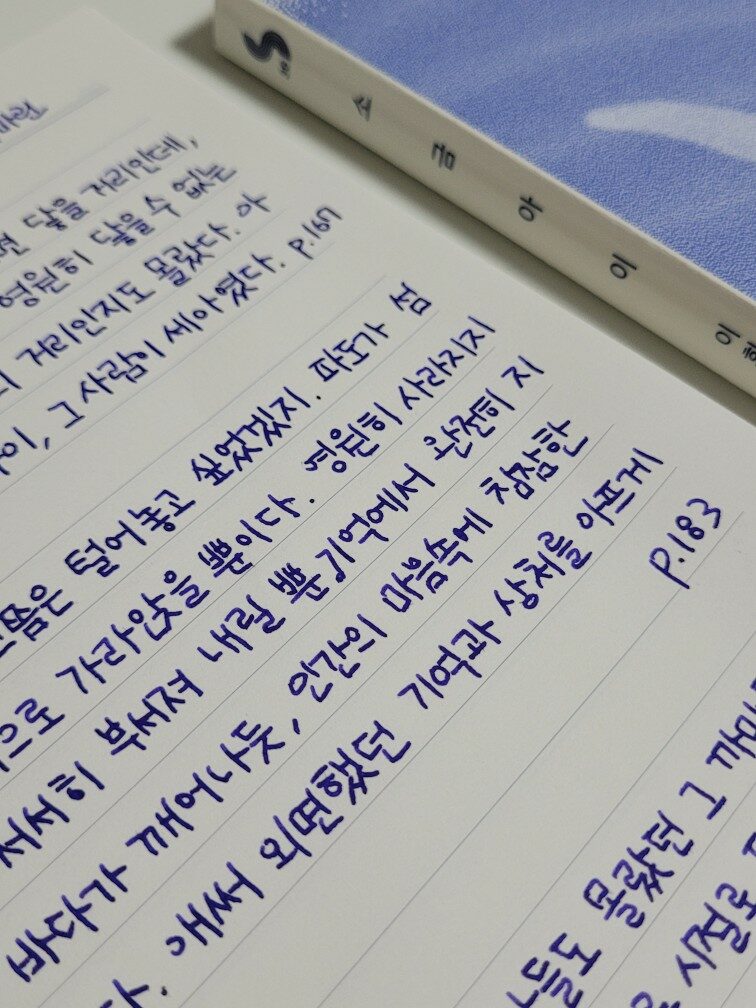 소금아이
이
면 닿을 거리인데,
영원히 닿을 수 없는
거리인지도 몰랐다. 아
이, 그 사람이 세아였다. p.167
쯤은 털어놓고 싶었겠지. 파도가 섬
으로 가라앉을 뿐이다. 영원히 사라지지
서서히 부서져 내릴 뿐 기억에서 완전히 지
바다가 깨어나듯, 인간의 마음속에 침잠한
애써 외면했던 기억과 상처를 아프게
p.183
들도 몰랐던 그
시절로